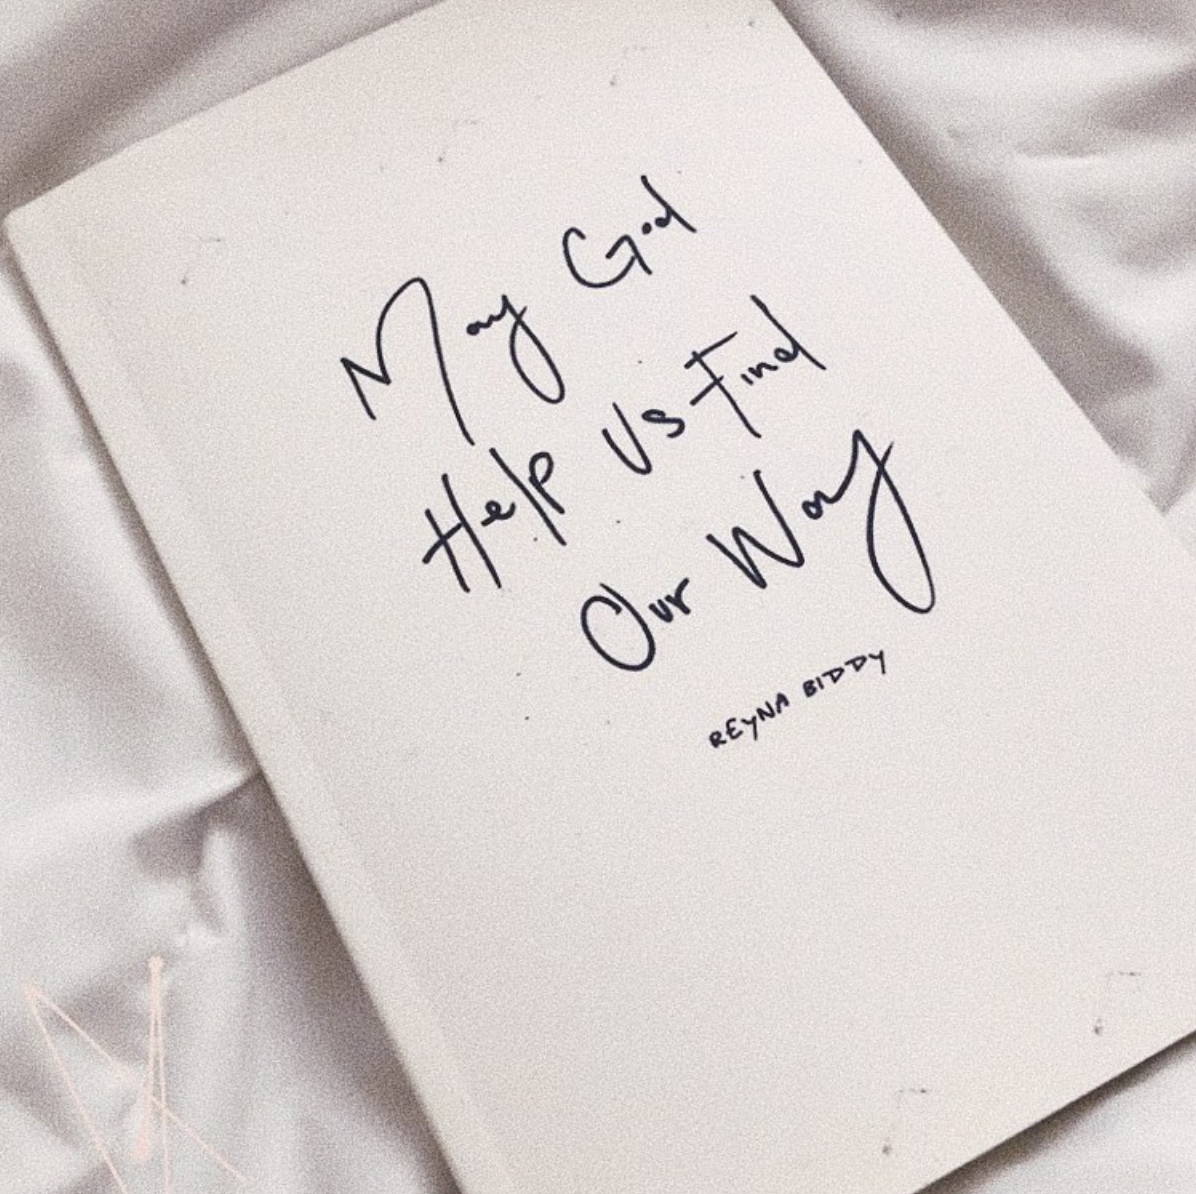 May God
Help Us Find
Our Way
REYNA BIDDY